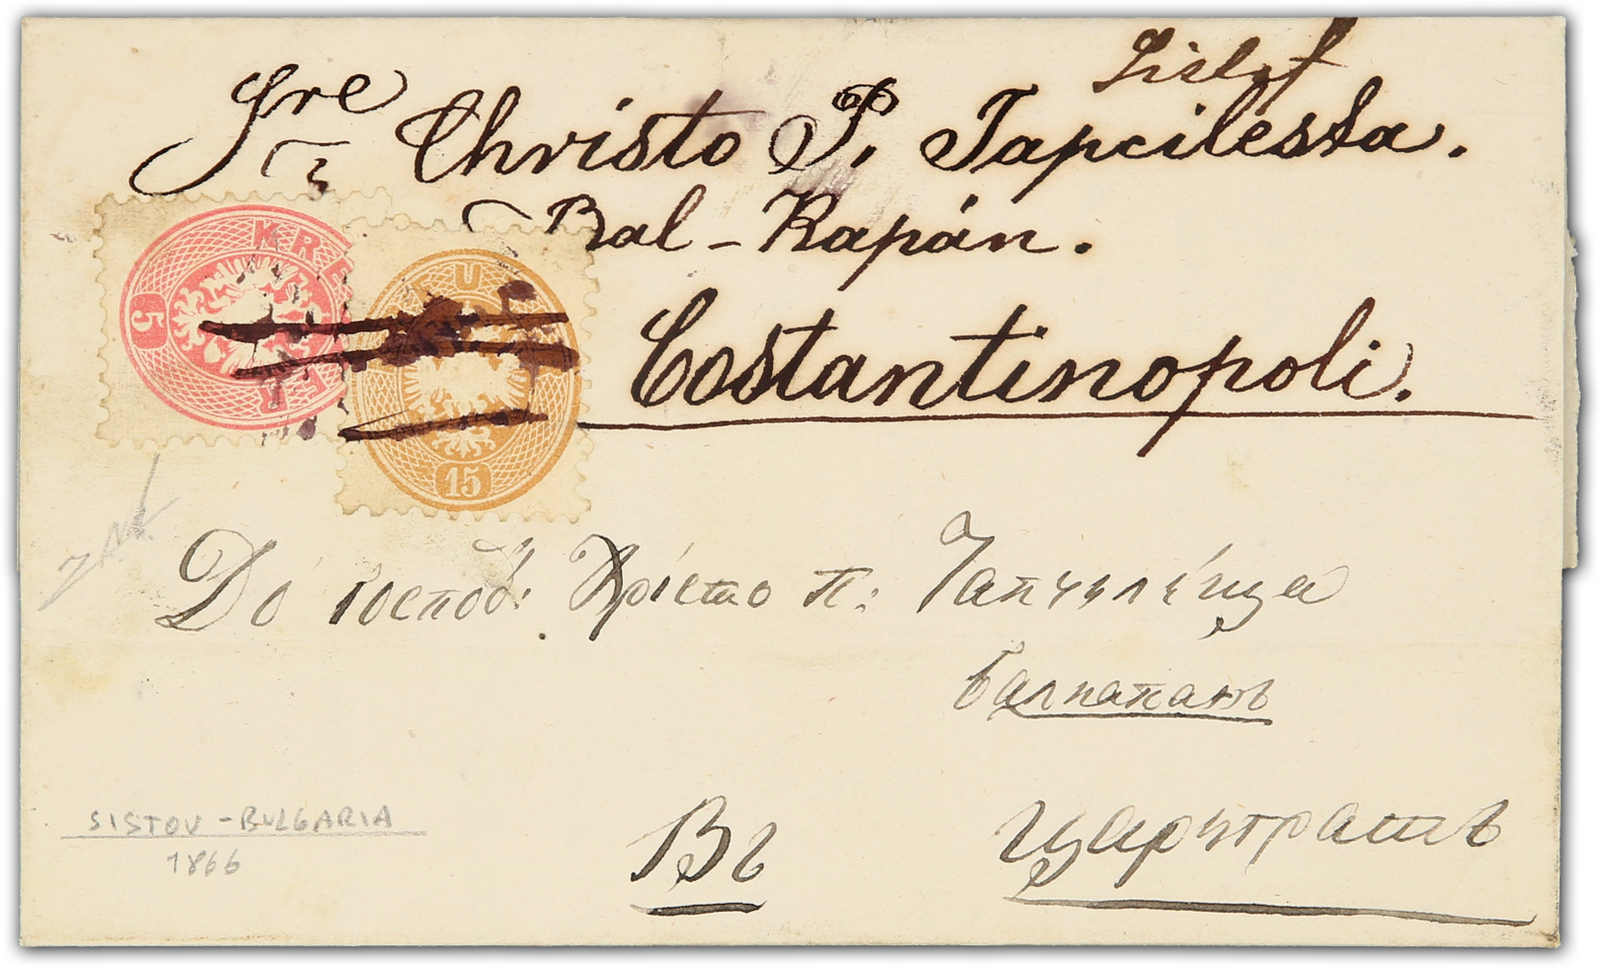 Sre Christo P. Tapcilesta.
Bal-Kapán.
Costantinopoli.
KRE
5
15
До Господ: Хрісто п: Тапчилéща
Балкапанъ
Въ Цариградъ
SISTOV - BULGARIA
1866